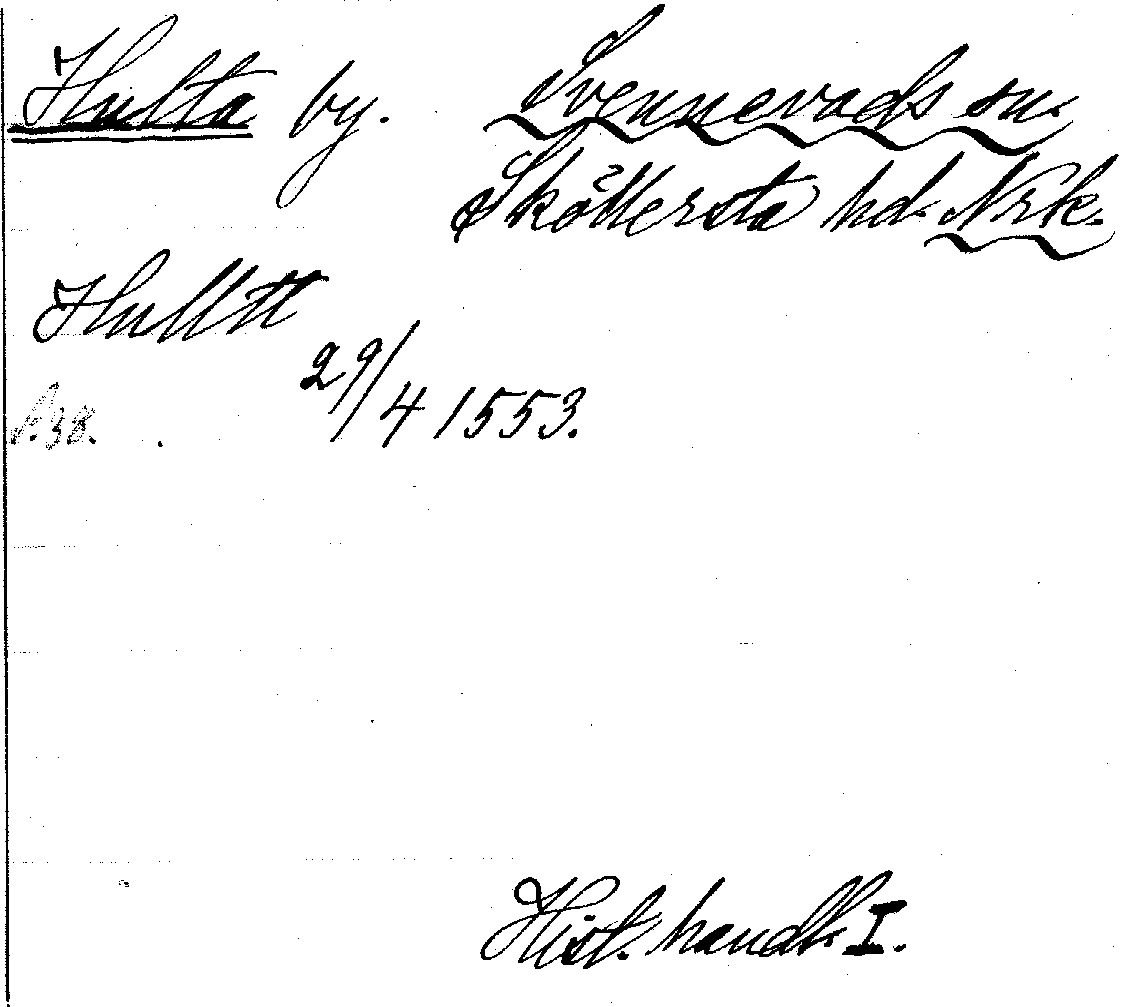 Hulta by. Svennevads sn.
Sköllersta hd. Nrk.
Hulltt
29/4 1553.
s. 38.
Hist. handl. I.